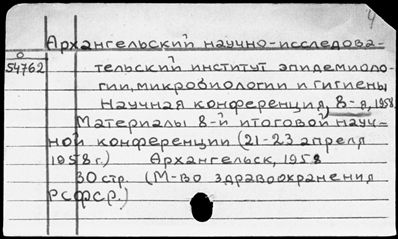 Архангельский научно-исследова-
О
54762
тельский институт эпидемиоло-
гии, микробиологии и гигиены
Научная конференция, 8-я, 1958
Материалы 8-й итоговой науч-
ной конференции (21-23 апреля
1958г.) Архангельск, 1958
30 стр. (М-во здравоохранения
РСФСР.)